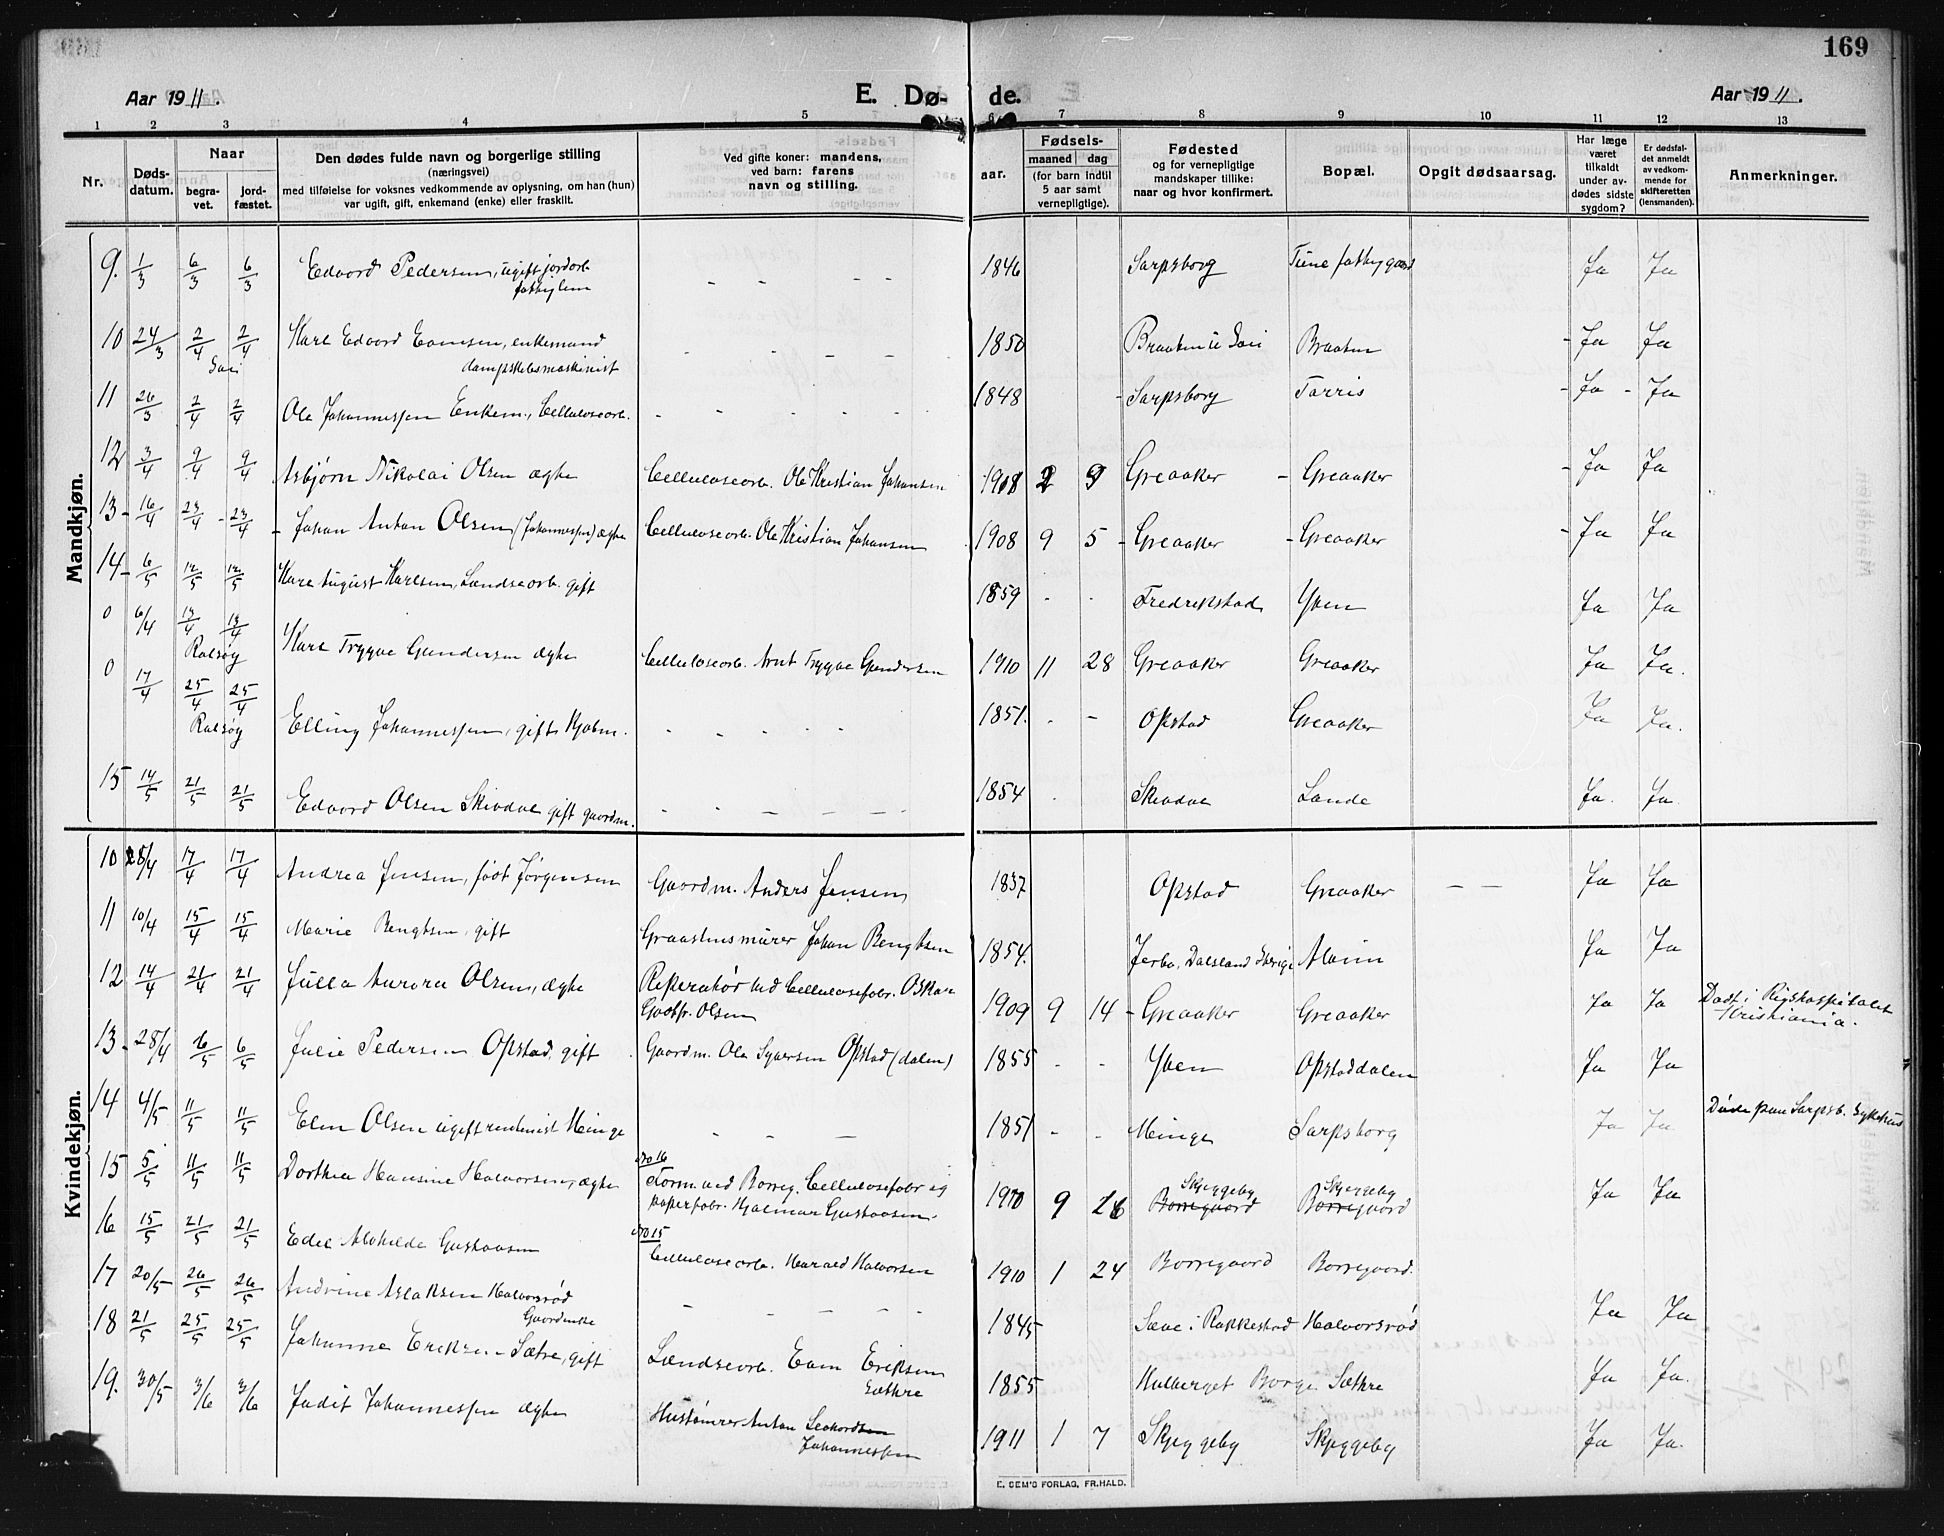 169
Aar 1911.
E. Dø-
de.
Aar 1911.
1 2 3 4 5 6 7 8 9 10 11 12 13
Nr.
Døds-datum.
Naar
begra-vet.
jord-fæstet.
Den dødes fulde navn og borgerlige stilling
(næringsvei)
med tilføielse for voksnes vedkommende av oplysning, om han (hun)
var ugift, gift, enkemand (enke) eller fraskilt.
Ved gifte koner: mandens,
ved barn: farens
navn og stilling.
aar.
Fødsels-
maaned dag
(for barn indtil
5 aar samt
vernepligtige).
Fødested
og for vernepligtige
mandskaper tillike:
naar og hvor konfirmert.
Bopæl.
Opgit dødsaarsag.
Har læge
været
tilkaldt
under av-
dødes sidste
sygdom?
Er dødsfal-
det anmeldt
av vedkom-
mende for
skifteretten
(lensmanden).
Anmerkninger.
Mandkjøn.
9. 1/3 6/3 6/3 Edvard Pedersen, ugift jordarb. - - - - 1846 Sarpsborg Tune fattiggaard Ja Ja
fattiglem
10 24/3 2/4 2/4 Karl Edvard Evensen, enkemand - - - - 1850 Braaten Braaten - Ja Ja
dampskibsmaskinist
11 26/3 2/4 2/4 Ole Johannessen Enkem., Celluloseorb. - - - - 1848 - Sarpsborg Torris - Ja - Ja
12 3/4 9/4 9/4 Asbjørn Nikolai Olsen ægte Celluloseorb. Ole Kristian Johansen 1908 2 9 Greaaker - Greaaker - Ja Ja
13 - 16/4 23/4 - 23/4 - Johan Anton Olsen (Johannessen) ægte Celluloseorb. Ole Kristian Johansen 1908 9 5 - Greaaker - Greaaker - Ja Ja
14 - 6/5 12/5 12/5 Karl August Karlsen, Lændseorb. gift 1859 - - Fredrikstad Yven Ja Ja
0 6/4 13/4 13/4 Karl Trygve Gundersen ægte Celluloseorb. Arnt Trygve Gundersen 1910 11 28 Greaaker Greaaker Ja Ja.
Rolsøy
0 17/4 25/4 25/4 Elling Johannessen, gift - - - - 1851. - - Opstad Greaaker Ja Ja.
Rolsøy
15 14/5 21/5 21/5 Edvard Olsen Skivdal gift gaardm. - - - - - 1854 - Skivdal Lande Ja. Ja.
Kvindekjøn.
10 17/4 17/4 Andrea Jensen, født Jørgensen Gaardm. Anders Jensen 1837 Opstad Greaaker - - Ja Ja
11 10/4 15/4 15/4 Marie Bengtsen, gift Graastensmurer Johan Bengtsen 1854. Dalsland Sverige Alvim Ja Ja
12 14/4 21/4 21/4 Julla Aurora Olsen, ægte Reperatør ved Cellulosefabr. Oskar
Godtfr. Olsen 1909 9 14 - Greaaker Greaaker Ja Ja Død i Rigshospitalet
Kristiania.
13 - 28/4 6/5 6/5 Julie Pedersen Opstad, gift Gaardm. Ole Syversen Opstad (dalen) 1855 - - Yven Opstaddalen Ja Ja
14 4/5 11/5 11/5 Elen Olsen ugift rentenist Minge - - - 1851 - - Minge Sarpsborg Ja Ja Døde paa Sarpsb. Sykehus
15 5/5 11/5 11/5 Dorthea Hansine Halvorsen, ægte No 16
Form. ved Borreg. Cellulosefabr og
papirfabr. Hjalmar Gustavsen. 1910 9 26 Skjeggeby Borregaard Skjeggeby Borregaard Ja Ja
16 15/5 21/5 21/5 Edel Alvhilde Gustavsen No 15
Celluloseorb. Harald Halvorsen 1910 1 24 Borregaard Borregaard.
17 20/5 26/5 26/5 Andrine Aslaksen Halvorsrød - - - - 1845 i Rakkestad Halvorsrød Ja Ja
Gaardenke
18 21/5 25/5 25/5 Johanne Eriksen Sætre, gift Lændseorb. Even Eriksen
Sæthre 1855 Hulberget Borge Sæthre Ja Ja.
19. 30/5 3/6 3/6 Judit Johannessen ægte Hustømrer Anton Leohordsen
Johannessen 1911 1 7 Skjeggeby Skjeggeby Ja Ja.
E. SEM'S FORLAG, FR.HALD.